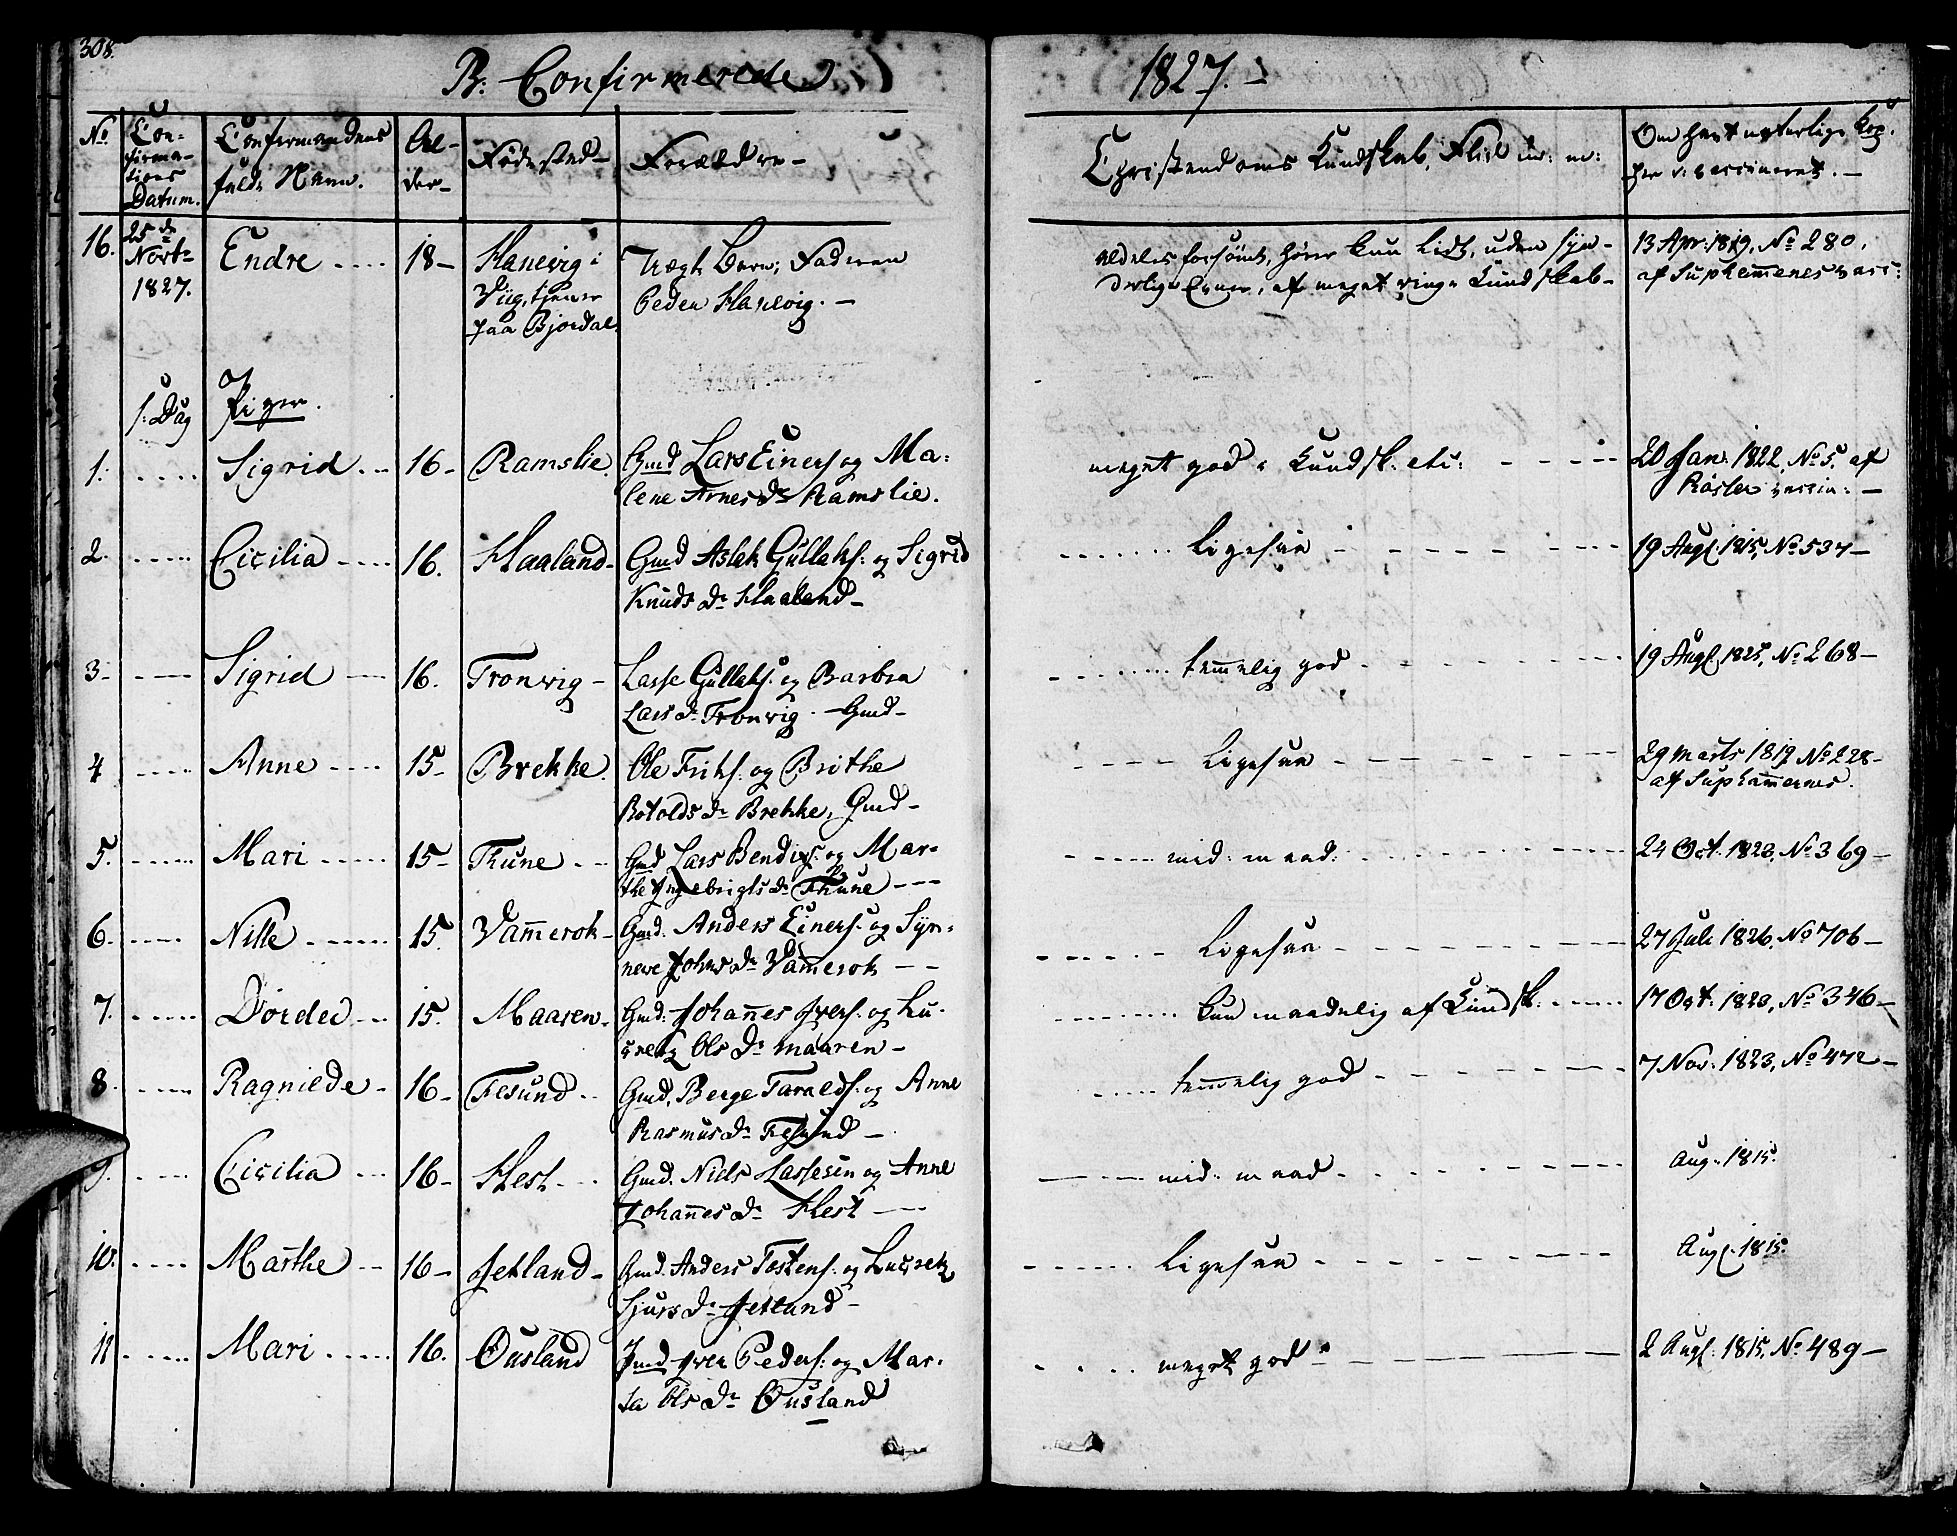 308.
B. Confirmerede 1827.
No.
Con-
firma-
tions
Datum.
Confirmandens
fulde Navn.
Al-
der
Födested
Forældre
Christendoms Kundskab, Flid m: m:
Om havt naturlige Kop.
her v: vaccineret.
16. 25de Endre 18 Hanevig i Uægte Barn; Faderen
Nvbr Viig, tjener Peder Hanevig.
1827. paa Bjordal
aldeles forsömt, hörer kun lidt, uden syn-
derlige Evner, af meget ringe Kundskab
13 Apr: 1819, No 280,
af Suphammenes vacc:
s: Dag Piger.
1. Sigrid 16 Ramslie Gmd Lars Einers og Ma-
lene Arnes Dr Ramslie.
meget god Kundsk. etc:
20 Jan: 1822, No 5, af
Røsler vaccin:
2. Cicilia 16. Haaland Gmd Aslak Gullaks: og Sigrid
Knuds Dr Haaland
ligesaa
19 Augs: 1815, No 537
3 Sigrid 16. Tronvig Lasse Gullaks: og Barbra
Lars Dr Tronvig. Gmd
temelig god
19 Augs: 1825, No 268
4 Anne 15 Brekke. Ole Friks: og Brithe
Botolds Dr Brekke, Gmd
ligesaa
29 Marts 1819 No 228
af Suphammenes.
5. Mari 15 Thune Gmd Lars Bendixs: og Mar-
the Ingebrigts Dr Thune
mid: maad:
24 Oct: 1820, No 369
6. Nille 15. Vamerok Gmd. Anders Einers: og Syn-
neve Johns Dr Vamerok
ligesaa
27 Juli 1826, No 706
7. Dorder 15. Maaren Gmd: Johannes Ivers: og Lu-
cretz Ols Dr Maaren
kun maadelig af Kundsk:
17 Oct: 1820, No 346
8. Ragnilde 16 Fesund Gmd, Berge Taralds: og Anne
Rasmus Dr Fesund
temelig god
7 Nov: 1823, No 472
9. Cicilia 16 Hest Gmd. Niels Lassesen og Anne
Johannes Dr Hest
mid: maad
Aug: 1815.
10. Marthe 16 Jetland Gmd. Anders Tostens: og Lucretz
Sjurs Dr Jetland
ligesaa
Augs: 1815.
11 Mari 16. Ousland Gmd Iver Peders: og Mar-
ta Ols Dr Ousland
meget god
2 Augs: 1815, No 489